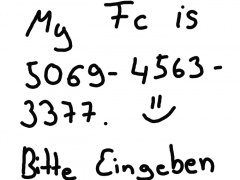 My Fc is
5069-4563-
3377. =)
Bitte Eingeben